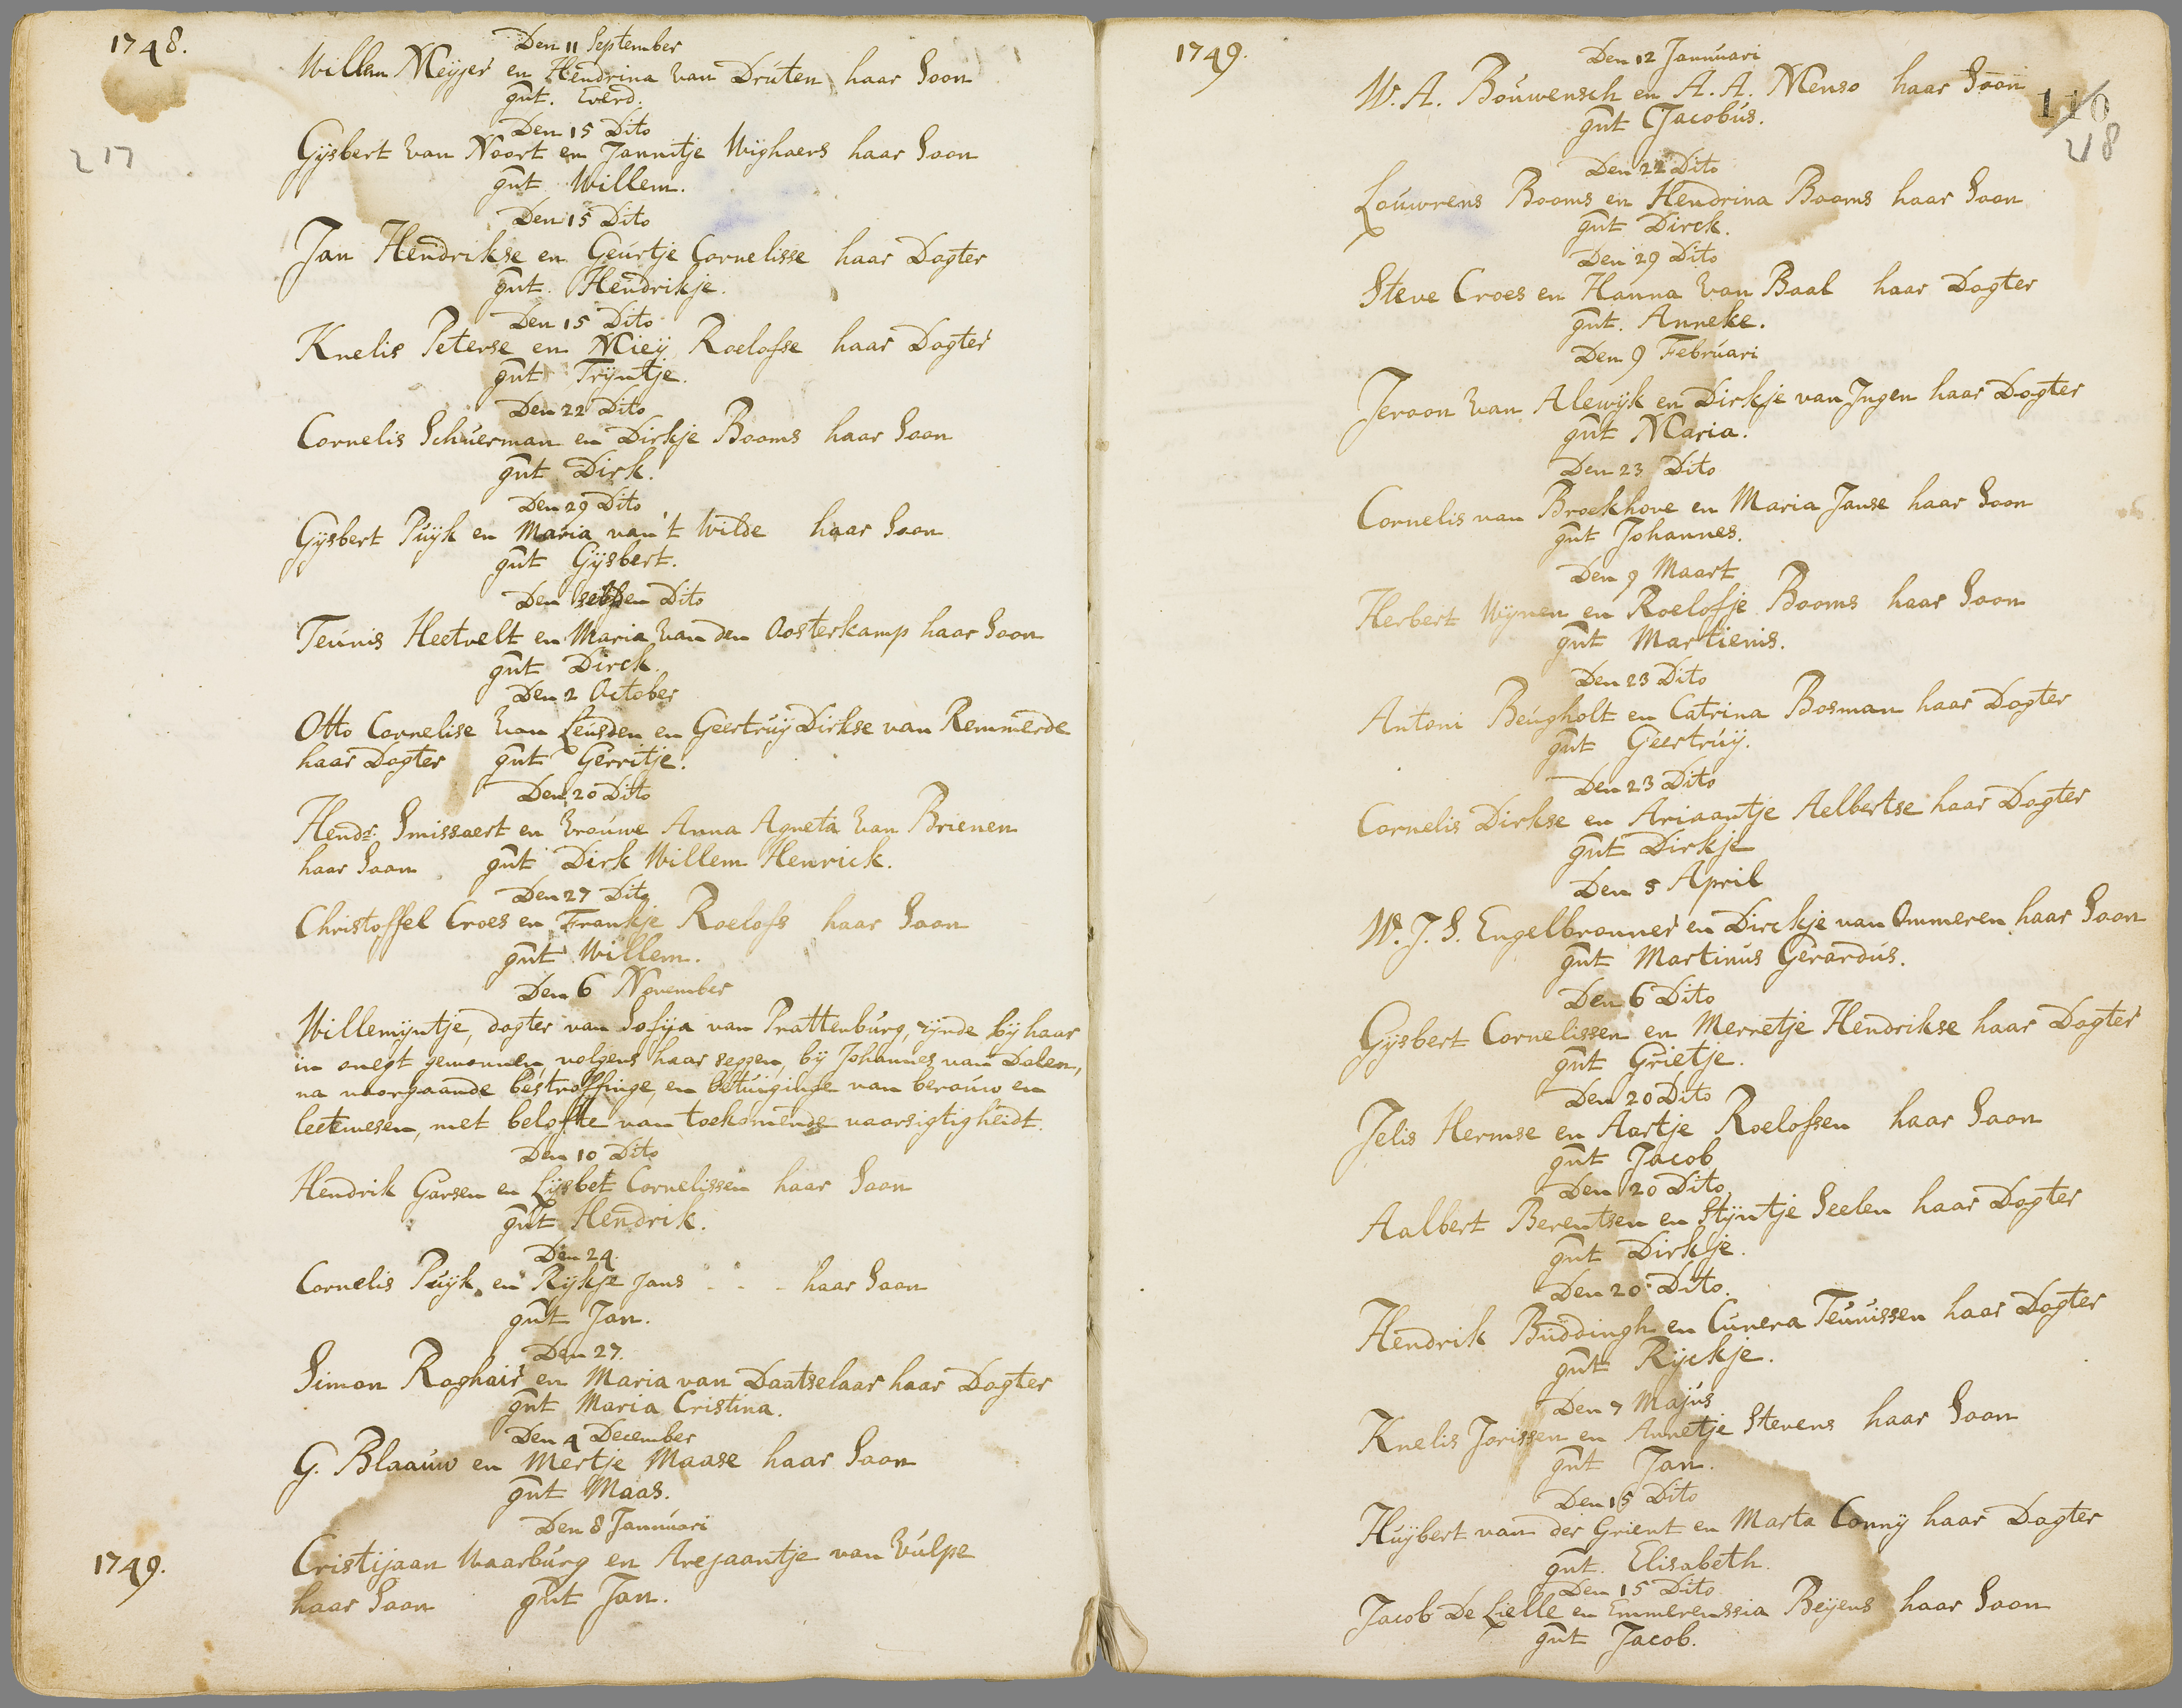 1748.
Den 11 September
Willem Meijer en Hendrina van Drúten haar Soon
gnt. Everd.
217
Den 15 Dito
Gijsbert van Noort en Jannitje Wighaers haar Soon
gnt Willem.
Den 15 Dito
Jan Hendrikse en Geúrtje Cornelisse haar Dogter
gnt. Hendrikje.
Den 15 Dito
Knelis Peterse en Mieij Roelofse haar Dogter
gnt Trijntje.
Den 22 Dito
Cornelis Schúerman en Dirkje Booms haar Soon
gnt Dirk.
Den 29 Dito
Gijsbert Púijk en Maria van 't Wilde haar Soon
gnt Gijsbert.
Den selven Dito
Teúnis Heetvelt en Maria van den Oosterkamp haar Soon
gnt Dirck.
Den 2 October
Otto Cornelise van Leúsden en Geertrúij Dirkse van Remmerde
haar Dogter gnt Gerritje.
Den 20 Dito
Hendr: Smissaert en Vroúwe Anna Agneta van Brienen
haar Soon gnt Dirk Willem Henrick.
Den 27 Dito
Christoffel Croes en Frankje Roelofs haar Soon
gnt Willem.
Den 6 November
Willemijntje, dogter van Sofija van Prattenbúrg, zijnde bij haar
in onegt gewonnen, volgens haar seggen, bij Johannes van Dolen,
na voorgaande bestraffinge, en betúiginge van beroúw en
leetwesen, met belofte van toekomende voorsigtigheidt.
Den 10 Dito
Hendrik Garsen en Lijsbet Cornelissen haar Soon
gnt Hendrik.
Den 24.
Cornelis Púijk, en Rijkje Jans - - - haar Soon
gnt Jan.
Den 27.
Simon Roghair en Maria van Daatselaar haar Dogter
gnt Maria Cristina.
Den 4 December
G. Blaaúw en Mertje Maase haar Soon
gnt Maas.
Den 8 Janúúari
1749.
Cristijaan Waarbúrg en Arejaantje van Vúlpe
haar Soon gnt Jan.
1749.
Den 12 Janúúari
W. A. Boúwensch en A. A. Menso haar Soon
gnt Jacobús.
110
218
Den 22 Dito
Loúwrens Booms en Hendrina Booms haar Soon
gnt Dirck.
Den 29 Dito
Steve Croes en Hanna van Baal haar Dogter
gnt. Anneke.
Den 9 Febrúari
Jeroon van Alewijk en Dirkje van Ingen haar Dogter
gnt Maria.
Den 23 Dito
Cornelis van Broekhove en Maria Janse haar Soon
gnt Johannes.
Den 9 Maart
Herbert Wijnen en Roelofje Booms haar Soon
gnt Martienis.
Den 23 Dito
Antoni Beúgholt en Catrina Bosman haar Dogter
gnt Geertrúij.
Den 23 Dito
Cornelis Dirkse en Ariaantje Aelbertse haar Dogter
gnt Dirkje
Den 5 April
W. J. S. Engelbronner en Dirckje van Ommeren haar Soon
gnt Martinús Gerardús.
Den 6 Dito
Gijsbert Cornelissen en Merretje Hendrikse haar Dogter
gnt Grietje.
Den 20 Dito
Jelis Hermse en Aartje Roelofsen haar Soon
gnt Jacob
Den 20 Dito
Aalbert Berentsen en Stijntje Seelen haar Dogter
gnt Dirkje.
Den 20: Dito.
Hendrik Búddingh en Cúnera Teúnissen haar Dogter
gnt Rijckje.
Den 7 Majús
Knelis Jorissen en Annetje Stevens haar Soon
gnt Jan.
Den 15 Dito
Húijbert van der Grient en Marta Connij haar Dogter
gnt. Elisabeth.
Den 15 Dito
Jacob De Lielle en Emmerenssia Beijens haar Soon
gnt Jacob.